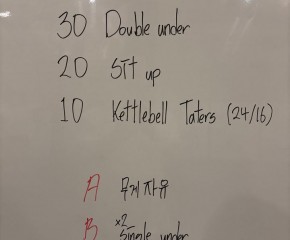 30 Double under
20 Sit up
10 Kettlebell Taters (24/16)
A 무게자유
B x2 Single under